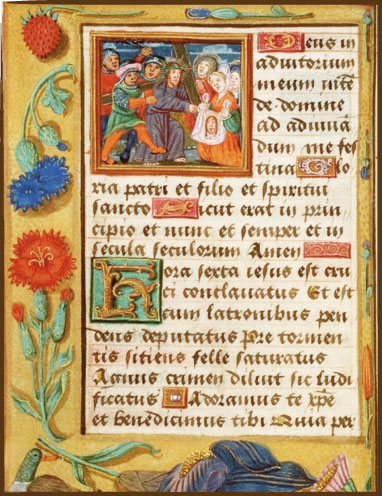 Deus in
adiutorium
meum intẽ
de domine
ad adiuuã
dum me fes
tina Glo
ria patri et filio et spiritui
sancto Sicut erat in prin
cipio et nunc et semper et in
secula seculorum Amen
Hora sexta iesus est cru
ci conclauatus Et est
cum latronibus pen
dens deputatus Pre tormen
tis sitiens felle saturatus
Agnus crimen diluit sic ludi
ficatus Adoramus te xp̃e
et benedicimus tibi Quia per